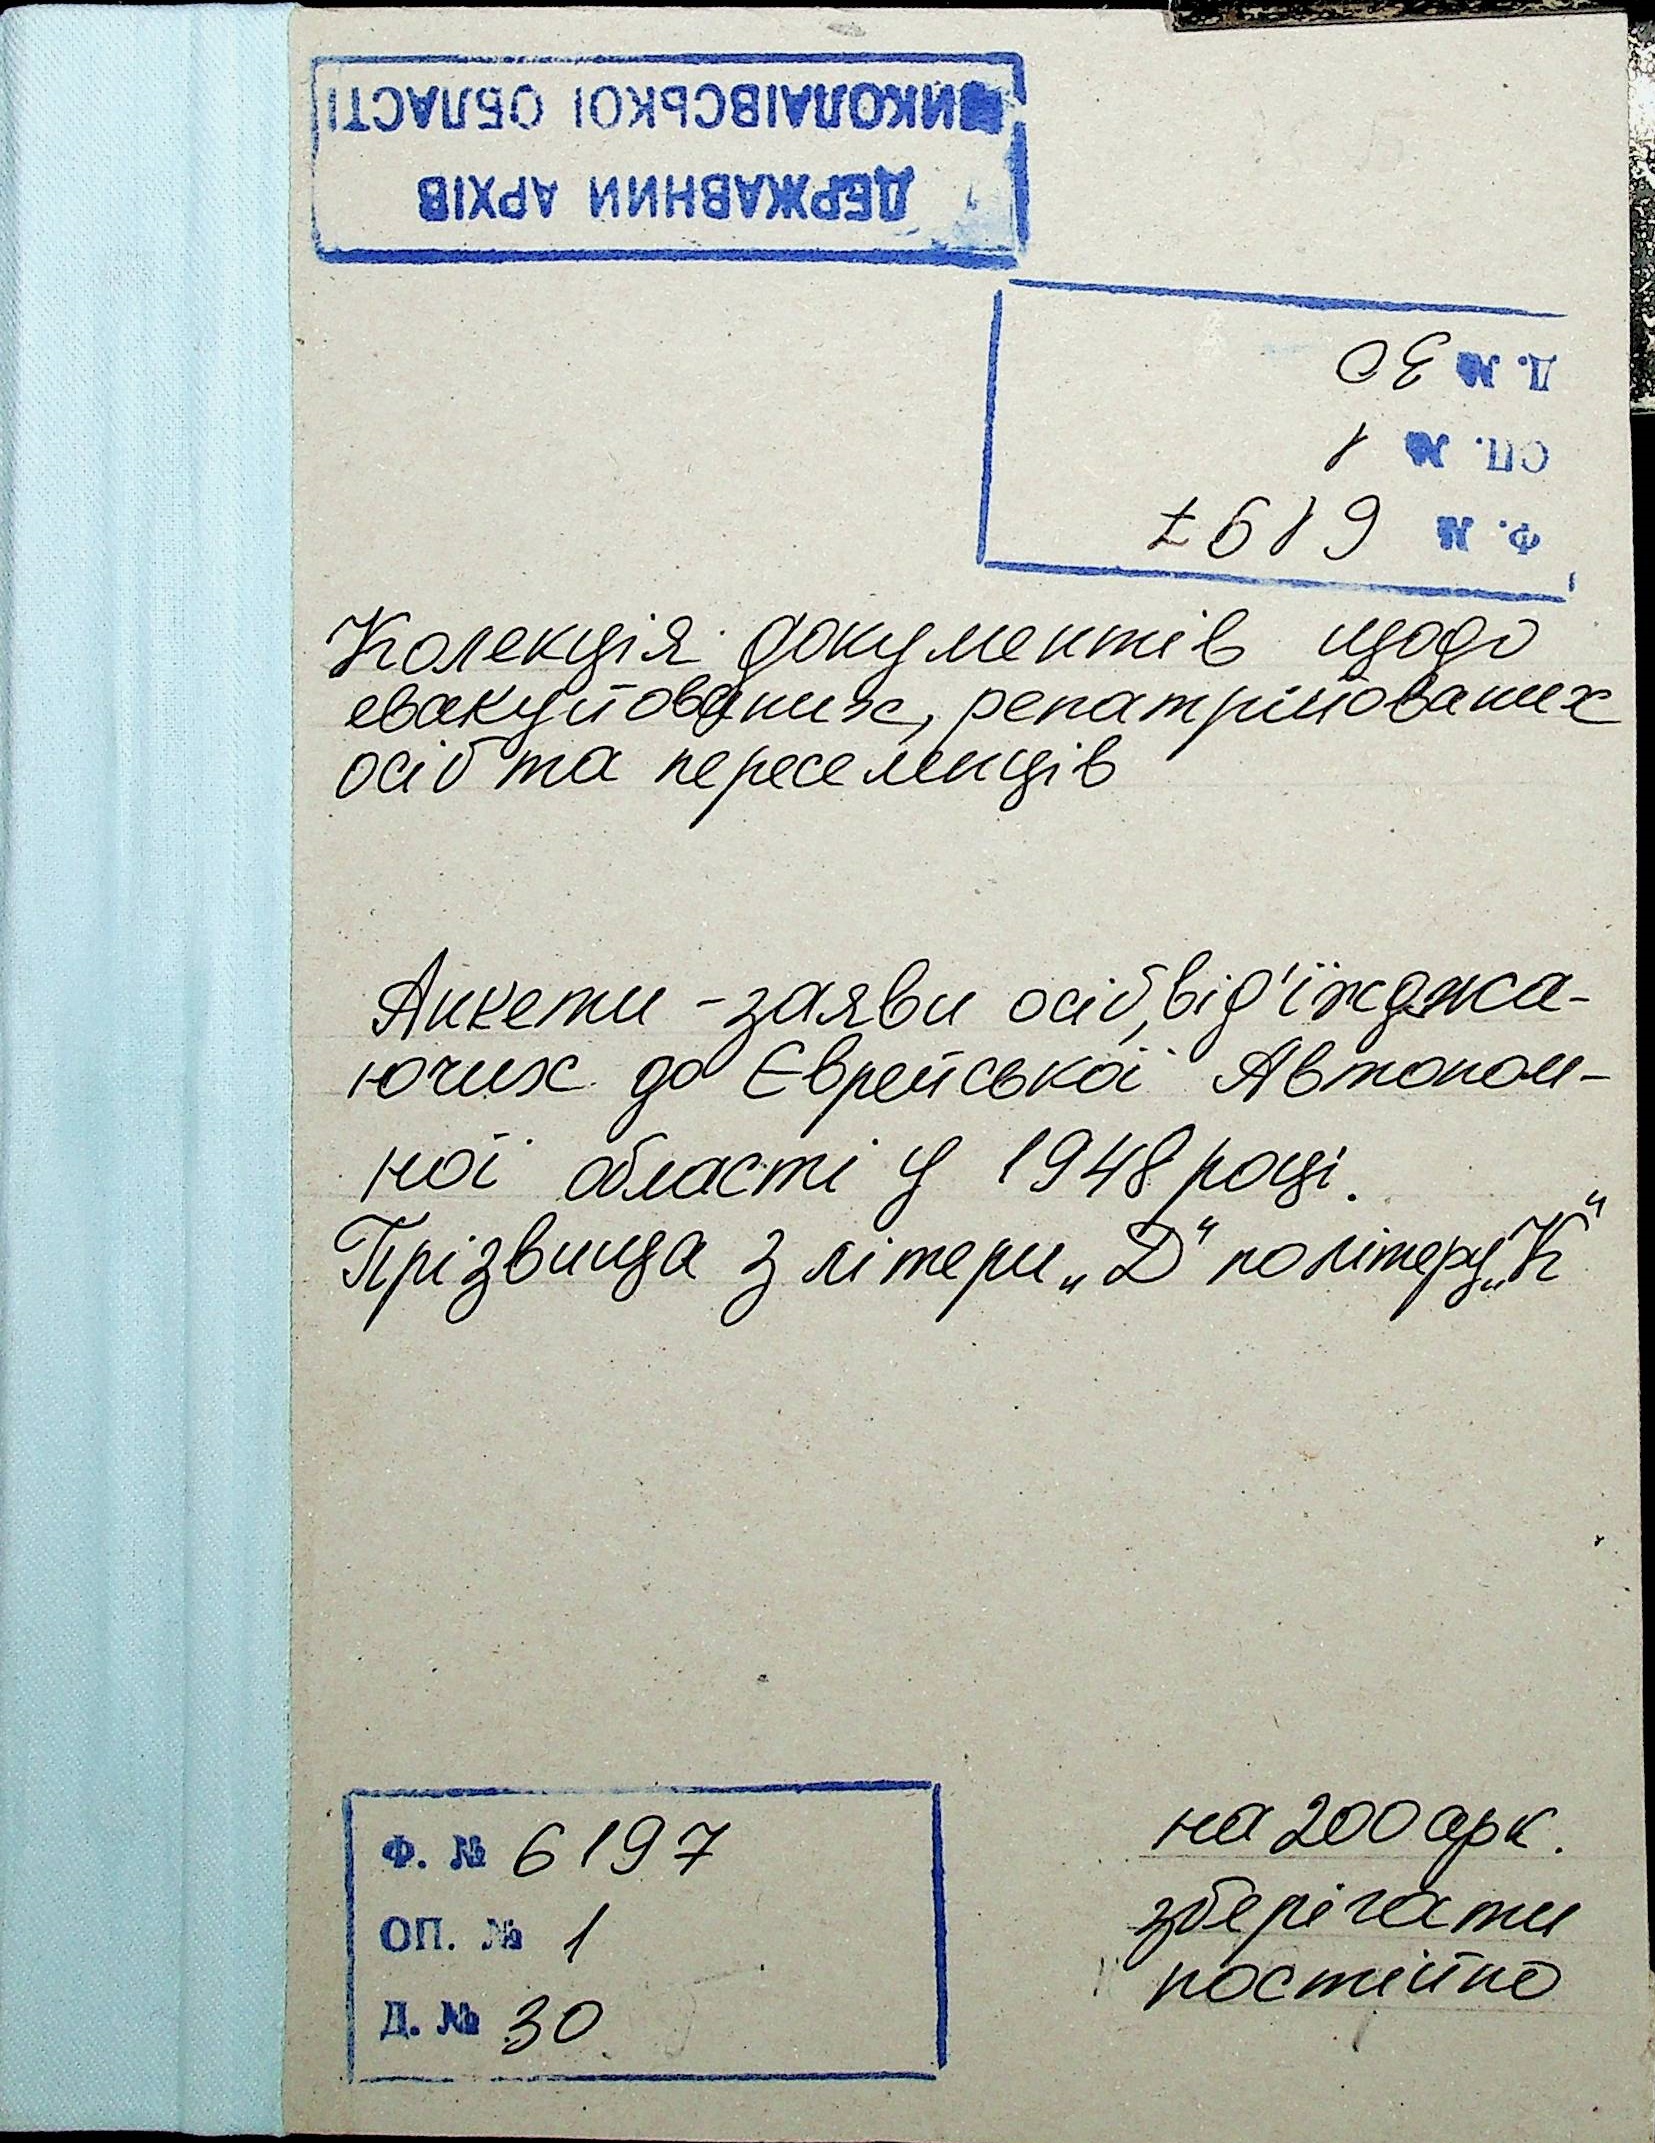 ДЕРЖАВНИЙ АРХІВ
МИКОЛАЇВСЬКОЇ ОБЛАСТІ
Ф. № 6197
ОП. № 1
Д. № 30
Колекція документів щодо
евакуйованих, репатрійованих
осіб та переселенців
Анкети - заяви осіб, від'їжджа-
ючих до Єврейської Автоном-
ної області у 1948 році.
Прізвища з літери „Д" по літеру „К"
Ф. № 6197
ОП. № 1
Д. № 30
на 200 арк.
зберігати
постійно